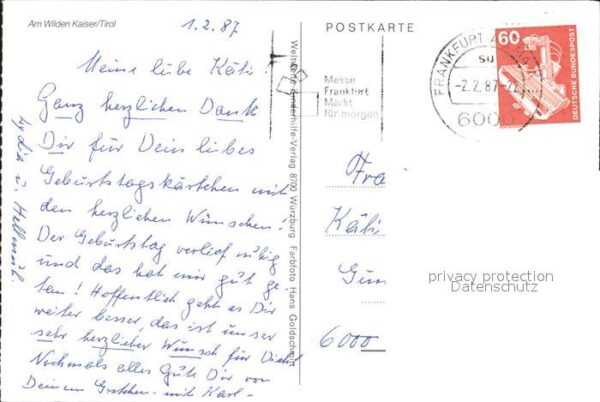 Am Wilden Kaiser/Tirol
1.2.87
Meine liebe Käti!
Ganz herzlichen Dank
Dir für Dein liebes
Geburtstagskärtchen mit
den herzlichen Wünschen!
Der Geburtstag verlief ruhig
und das hat mir gut ge-
tan! Hoffentlich geht es Dir
weiter besser, das ist unser
sehr herzlicher Wunsch für Dich!
Nochmals alles Gute Dir von
Deinem Gretchen mit Karl-
Lydia u. Hellmut.
Weltweite Kinderhilfe-Verlag 8700 Würzburg Farbfoto: Hans Goldschmitt
POSTKARTE
Messe
Frankfurt
Markt
für morgen
FRANKFURT AM MAIN
-2.2.87-22
6000
60
DEUTSCHE BUNDESPOST
Fra
Käti
Gün
6000
privacy protection
Datenschutz